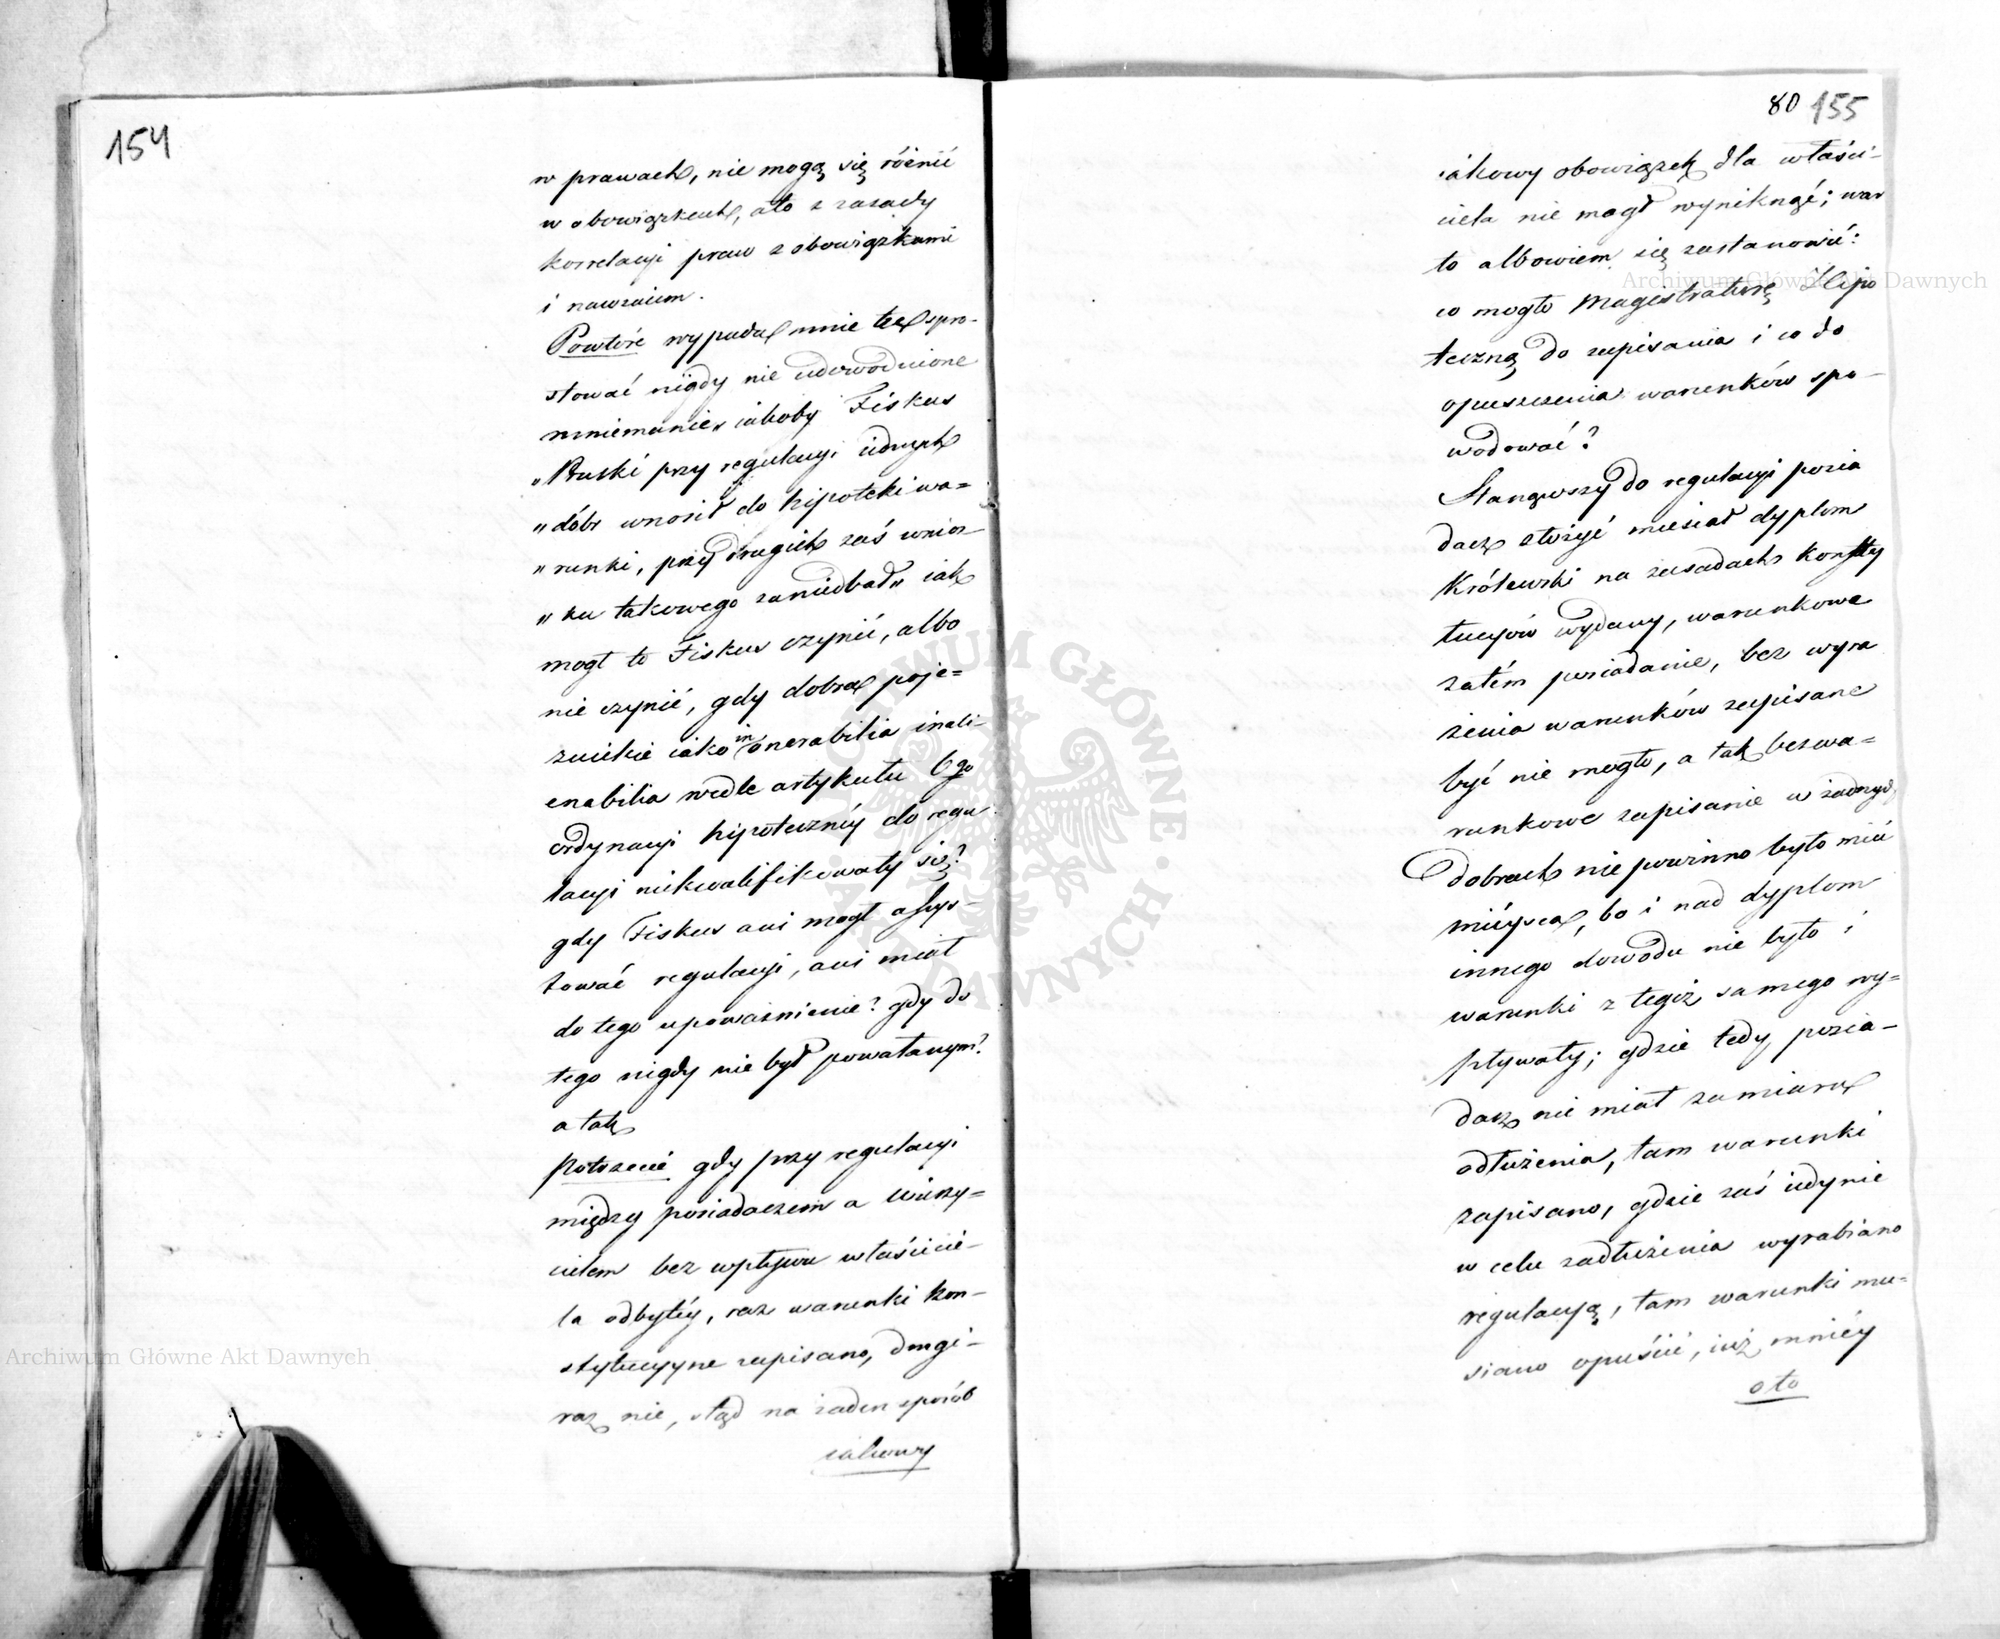 154
w prawach, nie mogą się różnić
w obowiązkach, a to z zasady
korrelacyi praw z obowiązkami
i nawzaiem.
Powtóre wypada mnie też spro-
stować nigdy nie udowodnione
mniemanie „iakoby Fiskus
„Pruski przy regulacyi iednych
„dóbr wnosił do hipoteki wa=
„runki, przy drugich zaś wnios-
„ku takowego zaniedbał„ iak
mogł to Fiskus czynić, albo
nie czynić, gdy dobra poje=
zuickie iako inonerabilia inali-
enabilia wedle artykułu 6go
ordynacyi hipoteczney do regu
lacyi niekwalifikowały się?
gdy Fiskus ani mogł assys-
tować regulacyi, ani miał
do tego upoważnienie? gdy do
tego nigdy nie był powołanym?
a tak
Potrzecie gdy przy regulacyi
między posiadaczem a wierzy=
cielem bez wpływu właścicie-
la odbytéy, raz warunki kon-
stytucyyne zapisano, drugi-
raz nie, stąd na żaden sposób
iakowy
80 155
iakowy obowiązek dla właści-
ciela nie mogł wyniknąć; war
to albowiem się zastanowić:
co mogło Magistraturę Hipo
teczną do zapisania i co do
opuszczenia warunków spo-
wodować?
Stanąwszy do regulacyi posia
dacz złożyć musiał dyplom
Królewski na zasadach konsty
tucyów wydany, warunkowe
zatém posiadanie, bez wyra
żenia warunków zapisane
być nie mogło, a tak bezwa=
runkowe zapisanie w żadnych
dobrach nie powinno było mieć
mieysca, bo i nad dyplom
innego dowodu nie było i
warunki z tegoż samego wy=
pływały; gdzie tedy posia-
dacz nie miał zamiaru
odłużenia, tam warunki
zapisano, gdzie zaś iedynie
w celu zadłużenia wyrabiano
regulacyą, tam warunki mu=
siano opuścić, iuż mniéy
oto
Archiwum Główne Akt Dawnych
Archiwum Główne Akt Dawnych
ARCHIWUM GŁÓWNE · AKT DAWNYCH ·